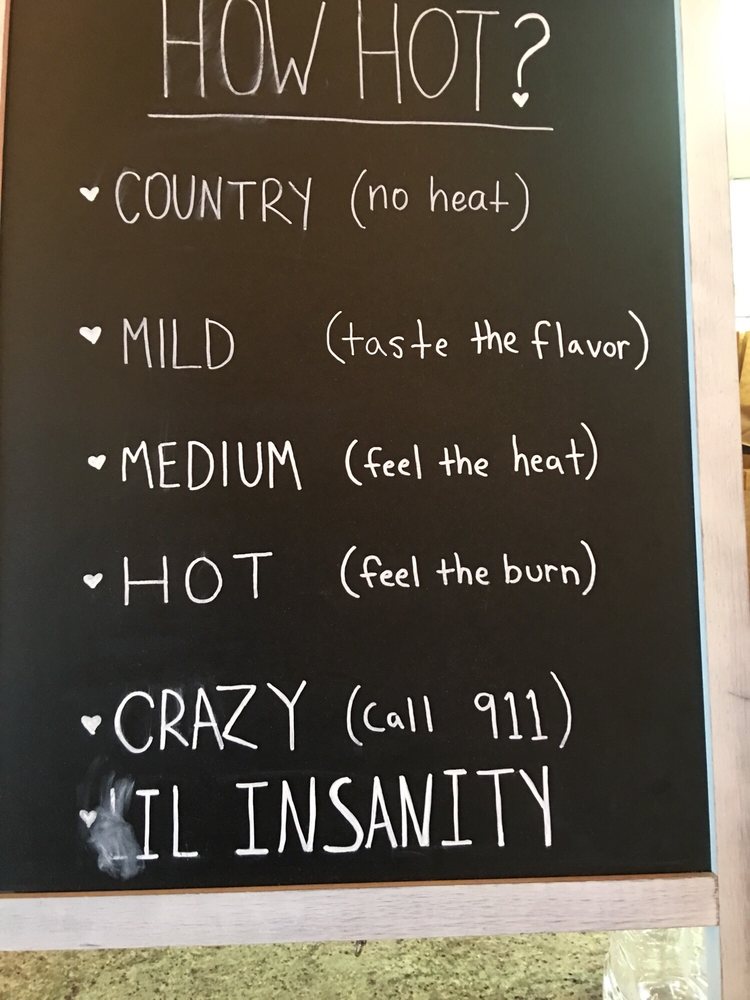 HOW HOT?
COUNTRY (no heat)
MILD (taste the flavor)
MEDIUM (feel the heat)
HOT (feel the burn)
CRAZY (call 911)
INSANITY